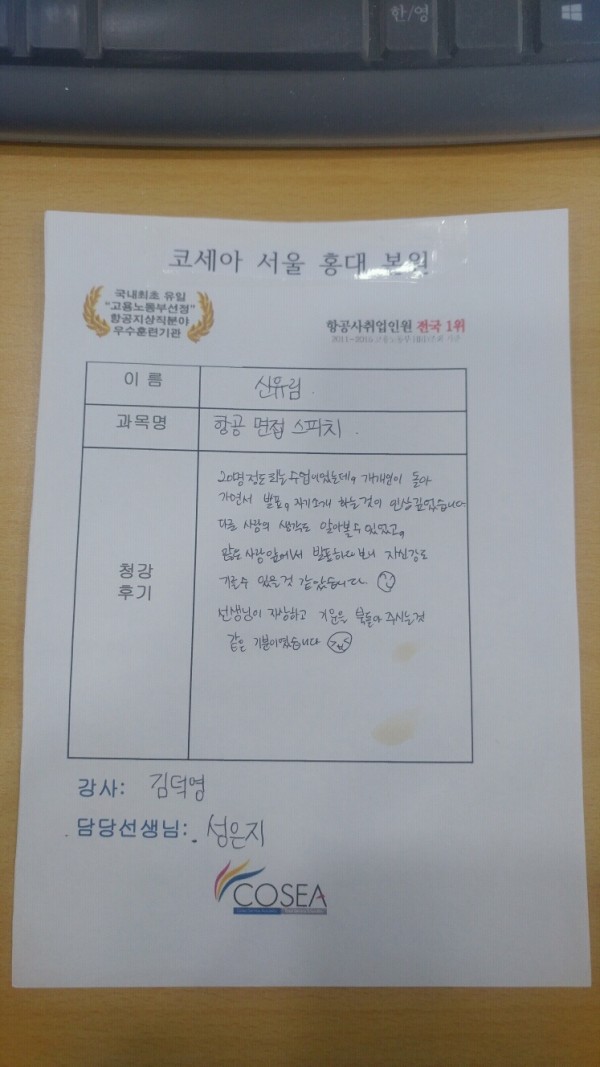 한/영
코세아 서울 홍대 본원
국내최초 유일
"고용노동부선정"
항공지상직분야
우수훈련기관
항공사취업인원 전국 1위
이 름
신유림.
과목명
항공 면접 스피치.
청강
후기
20명정도 되는 수업이었는데, 개개인이 돌아
가면서 발표, 자기소개 하는것이 인상깊었습니다
다른 사람의 생각도 알아볼수 있었고,
많은 사람앞에서 발표하다보니 자신감도
기를수 있을것 같았습니다
선생님이 자상하고 기운을 북돋아 주시는것
같은 기분이였습니다
강사: 김덕영
담당선생님: 성은지
COSEA